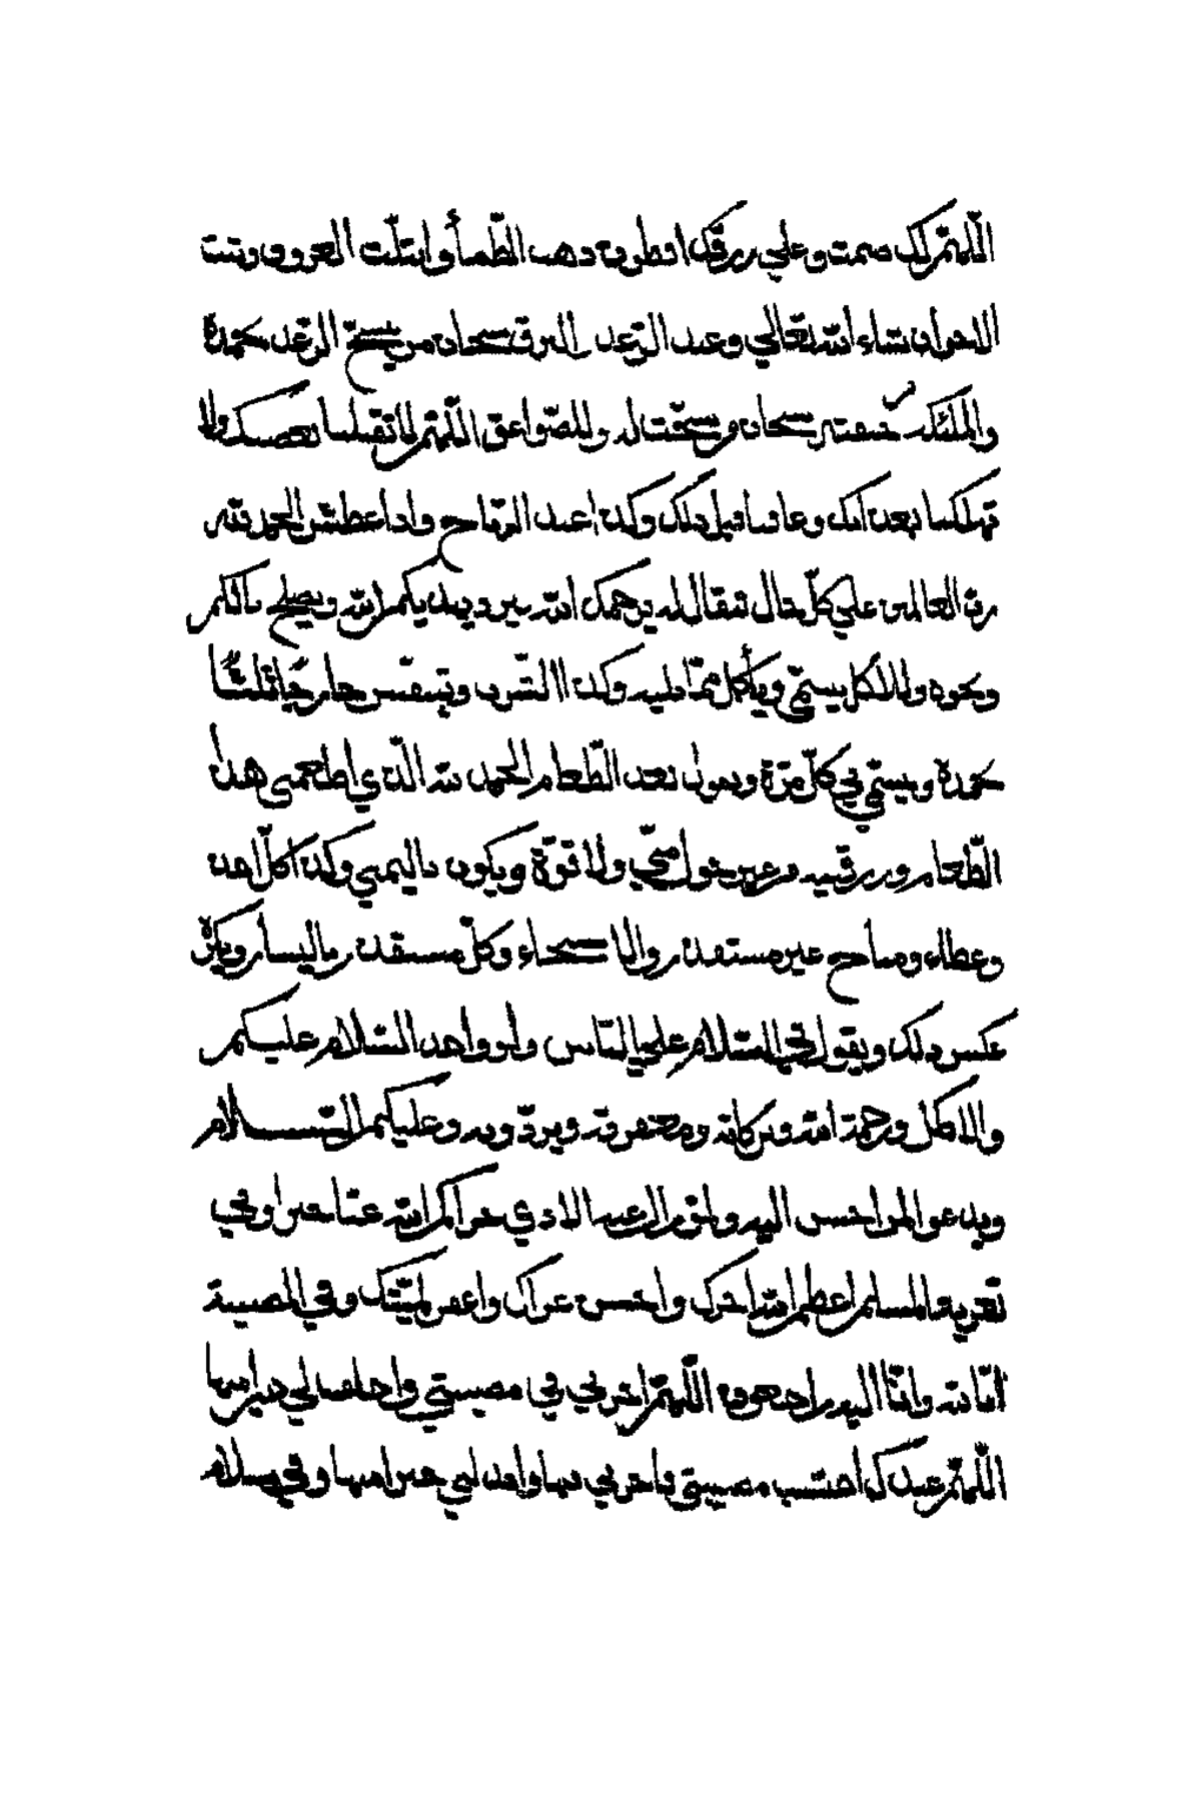 اللّهمّ لك صمت وعلى رزقك افطرت ذهب الظّمأ وابتلّت العروق وثبت
الاجر ان شاء الله تعالى وعند الرّعد والبرق سبحان من يسبّح الرّعد بحمده
والملئكة من خيفته سبحان من سبّحت له وللصّواعق اللّهمّ لا تقتلنا بغضبك ولا
تهلكنا بعذابك وعافنا قبل ذلك وكذا عند الرّياح واذا عطش الحمد لله
ربّ العالمين على كلّ حال فيقال له يرحمك الله فيرد يهديكم الله ويصلح بالكم
ونحوه وللاكل يسمّي ويأكل ممّا يليه وكذا الشّرب ويتنفّس خارجًا ثلثًا
بحمده ويسمّي في كلّ مرّة ويقول بعد الطّعام الحمد لله الّذي اطعمني هذا
الطّعام ورزقنيه من غير حول منّي ولا قوّة ويكون باليمين وكذا كلّ اخذ
وعطاء ومباح غير مستقذر والاستنجاء وكلّ مستقذر باليسار ويكره
عكس ذلك ويقول في السّلام على النّاس ولو واحد السّلام عليكم
والاكمل ورحمة الله وبركاته ومغفرته ويردّ وبه وعليكم السّلام
ويدعو لمن احسن اليه ولو الى عبد الاذى جزاكم الله عنّا خيرا وفي
تعزية المسلم اعظم الله اجرك واحسن عزاك وغفر لميّتك وفي المصيبة
انّا لله وانّا اليه راجعون اللّهمّ اجرني في مصيبتي واخلف لي خيرا منها
اللّهمّ عندك احتسب مصيبتي فاجرني فيها وابدلني خيرا منها وفي سلام